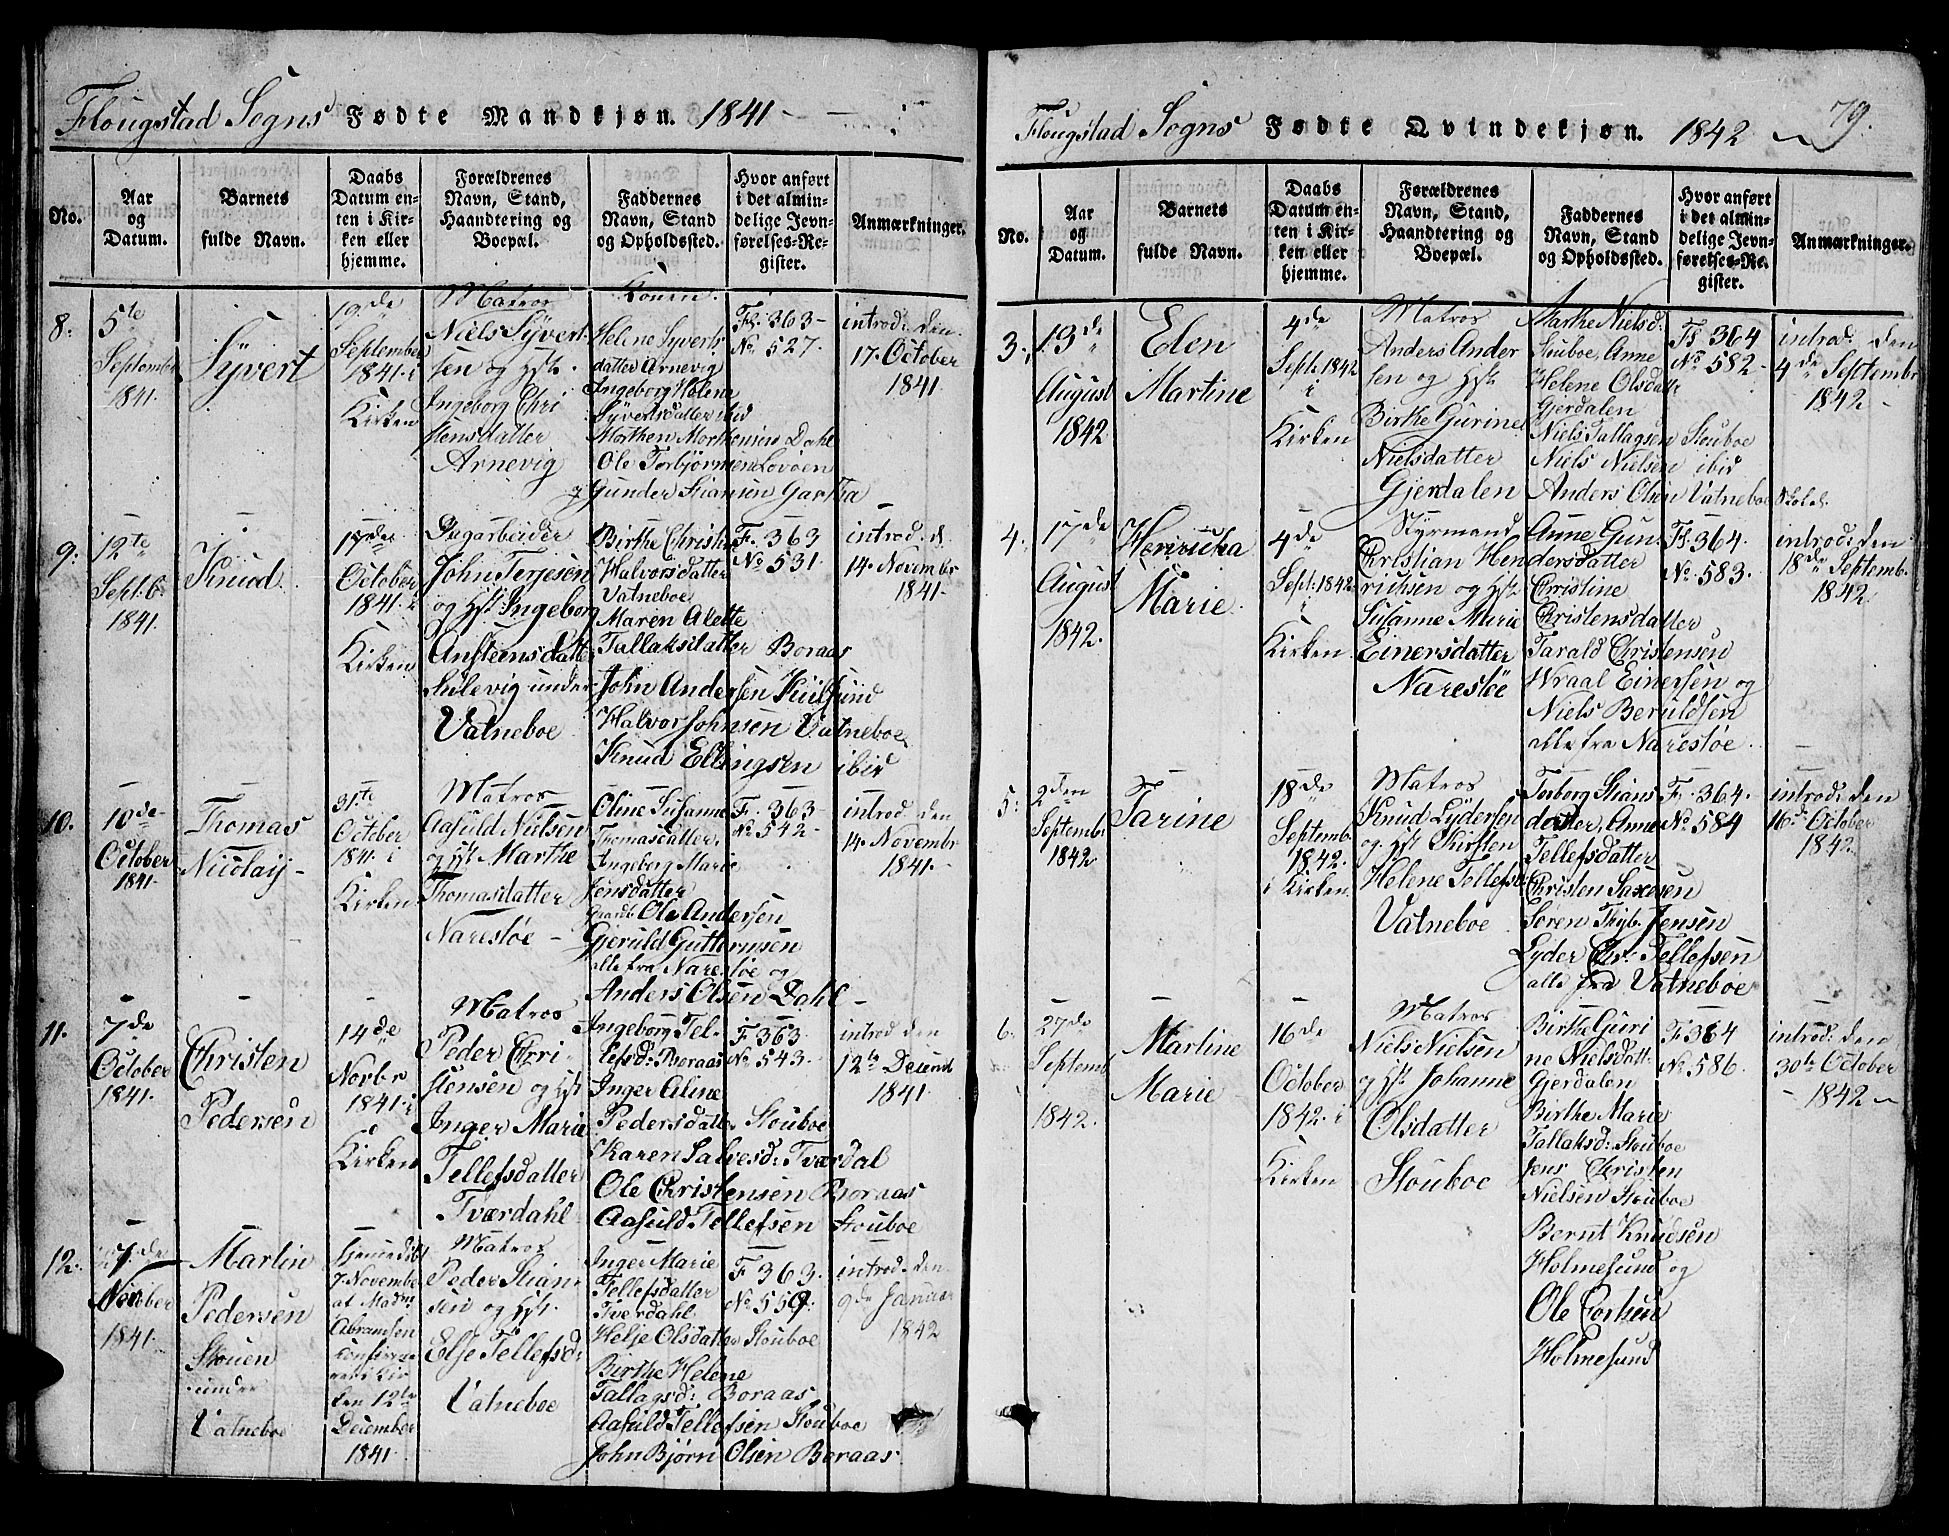 Flougstad Sogns Fødte Mandkjøn. 1841-
No.
Aar
og
Datum.
Barnets
fulde Navn.
Daabs
Datum en-
ten i Kir-
ken eller
hjemme.
Forældrenes
Navn, Stand,
Haandtering og
Boepæl.
Faddernes
Navn, Stand
og Opholdssted.
Hvor anført
i det almin-
delige Jevn-
førelses-Re-
gister.
Anmærkninger.
8.
5te
September
1841.
Syvert
19de
September
1841 i
Kirken
Matros
Niels Syvert-
sen og Hst.
Ingeborg Chri
stensdatter
Arnevig
Konen.
Helene Syverts
datter Arnevig
Ingeborg Helene
Syvertsdatter ibid
Morthen Morthensen Dahl
Ole Torbjørnsen Lovøen
og Gunder Stiansen Gartta
F. 363-
No. 527.
introd. den
17. October
1841
9.
12te
Septbr
1841.
Knud
17de
October
1841. i
Kirken
Dagarbeider
John Terjesen
og Hst. Ingeborg
Anstensdatte
under
Vatneboe.
Birthe Christi
Halvorsdatter
Vatneboe
Maren Alette
Tallaksdatter Boraas
John Andersen
Halvor Johnsen Vatneboe
Knud Ellingsen ibid
F. 363
No. 531.
introd. d.
14. Novembr
1841.
10.
10de
October
1841.
Thomas
Nicolay-
31te
October
1841. i
Kirken
Matros
Aasuld Nielsen
og Hst Marthe
Thomasdatter
Narestøe -
Oline Susanne
Thomasdatter
Ingeborg Marie
Jensdatter
Ole Andersen
Gjeruld Guttormsen
alle fra Narestøe og
Anders Olsen Dahl
F. 363-
No. 542-
introd den
14. Novembr
1841.
11.
7de
October
1841.
Christen
Pedersen
14de
Novbr
1841. i
Kirken
Matros
Peder Chri-
stensen og Hst
Inger Marie
Tellefsdatter
Tværdahl-
Ingeborg Tel-
lefsd: Boraas
Inger Aline
Pedersdatter Stouboe
Karen Salvesd: Tværdal
Ole Christensen Boraas
Aasuld Tellefsen Stouboe
F. 363
No. 543.
introd den
12te Decemb
1841.
12.
7de
1841.
Martin
Pedersen
Stouen
under
Vatneboe
hjemmedøbt
7 November
af Madm
Abramsen
ken 12te
December
1841.
Matros
Peder Stian-
sen og Hst.
Else Tellefsd:
Vatneboe
Inger Marie
Tellefsdatter
Tværdahl.
Helje Olsdatter Stouboe
Birthe Helene
Tallagsd: Boraas
Aasuld Tellefsen Stouboe
John Bjørn Olsen Boraas.
F 363.
No. 559.
introd. den
9de Januar
1842
Flougstad Sogns Fødte Qvindekjøn. 1842
79.
No.
Aar
og
Datum.
Barnets
fulde Navn.
Daabs
Datum en-
ten i Kir-
ken eller
hjemme.
Forældrenes
Navn, Stand,
Haandtering og
Boepæl.
Faddernes
Navn, Stand
og Opholdssted.
Hvor anført
i det almin-
delige Jevn-
førelses-Re-
gister.
Anmærkninger.
3.
13de
August
1842
Elen
Martine
4de
Septr 1842
i
Kirken
Matros
Anders Ander
sen og Hst.
Birthe Gurine
Nielsdatter
Gjerdalen
Marthe Nielsd:
Stouboe, Anne
Helene Olsdatt
Gjerdalen
Niels Tallagsen Stouboe
Niels Nielsen ibid
Anders Olsen Vatneboe
F. 364
No 582-
introd: den
4de Septembr
1842-
4.
17de
August
1842.
Henricka
Marie.
4de
Sept: 1842
i
Kirken
Styrmand
Christian Hen
richsen og Hst.
Susanne Marie
Einersdatter
Narestøe
Anne Gun
dersdatter
Christine
Christensdatter
Tarald Christensen
Wraal Einersen og
Niels Beruldsen
alle fra Narestøe.
F. 364.
No. 583.
introd: den
18de Septemb.
1842.
5.
2den
Septembr
1842
Tarine
18de
Septemb.
1842.
i Kirken
Matros
Knud Lydersen
og Hst Kirsten
Helene Tellefsd
Vatneboe
Torborg Stians
datter, Anne
Tellefsdatter
Christen Saxesen
Søren Thyb. Jensen
Lyder Chr. Tellefsen
alle fra Vatneboe
F. 364.
No. 584
introd: den
16de October
1842.
6.
27de
Septemb
1842.
Martine
Marie
16de
October
1842. i
Kirken
Matros
Niels Nielsen
og Hst Johanne
Olsdatter
Stouboe
Birthe Guri
ne Nielsdatt:
Gjerdalen
Birthe Marie
Tallaksd: Stouboe
Jens Christen
Nielsen Stouboe
Bernt Knudsen
Holmesund og
Ole
Holmesund
F. 364
No. 586.
introd: den
30te October
- 1842 -